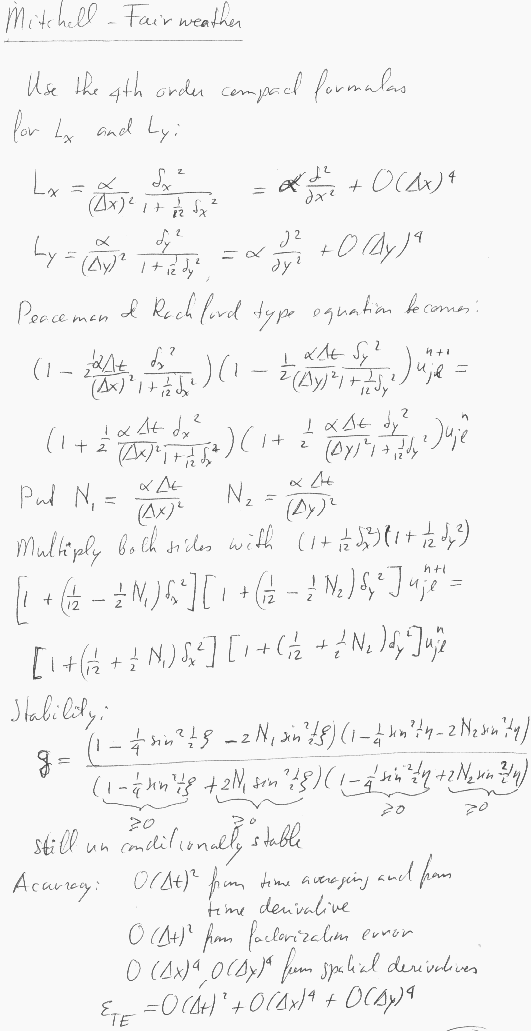 Mitchell - Fairweather
Use the 4th order compact formulas
for Lx and Ly:
Lx = α/(Δx)² δx²/(1 + 1/12 δx²) = α ∂²/∂x² + O(Δx)⁴
Ly = α/(Δy)² δy²/(1 + 1/12 δy²) = α ∂²/∂y² + O(Δy)⁴
Peaceman & Rachford type equation becomes:
(1 - 1/2 αΔt/(Δx)² δx²/(1 + 1/12 δx²)) (1 - 1/2 αΔt/(Δy)² δy²/(1 + 1/12 δy²)) u_jℓ^{n+1} =
(1 + 1/2 αΔt/(Δx)² δx²/(1 + 1/12 δx²)) (1 + 1/2 αΔt/(Δy)² δy²/(1 + 1/12 δy²)) u_jℓ^n
Put N₁ = αΔt/(Δx)² N₂ = αΔt/(Δy)²
Multiply both sides with (1 + 1/12 δx²)(1 + 1/12 δy²)
[1 + (1/12 - 1/2 N₁) δx²] [1 + (1/12 - 1/2 N₂) δy²] u_jℓ^{n+1} =
[1 + (1/12 + 1/2 N₁) δx²] [1 + (1/12 + 1/2 N₂) δy²] u_jℓ^n
Stability:
g = (1 - 1/3 sin² 1/2 ξ - 2N₁ sin² 1/2 ξ)(1 - 1/3 sin² 1/2 η - 2N₂ sin² 1/2 η) / (1 - 1/3 sin² 1/2 ξ + 2N₁ sin² 1/2 ξ)(1 - 1/3 sin² 1/2 η + 2N₂ sin² 1/2 η)
≥0 ≥0 ≥0 ≥0
still unconditionally stable
Accuracy: O(Δt)² from time averaging and from
time derivative
O(Δt)² from factorization error
O(Δx)⁴, O(Δy)⁴ from spatial derivatives
ε_TE = O(Δt)² + O(Δx)⁴ + O(Δy)⁴